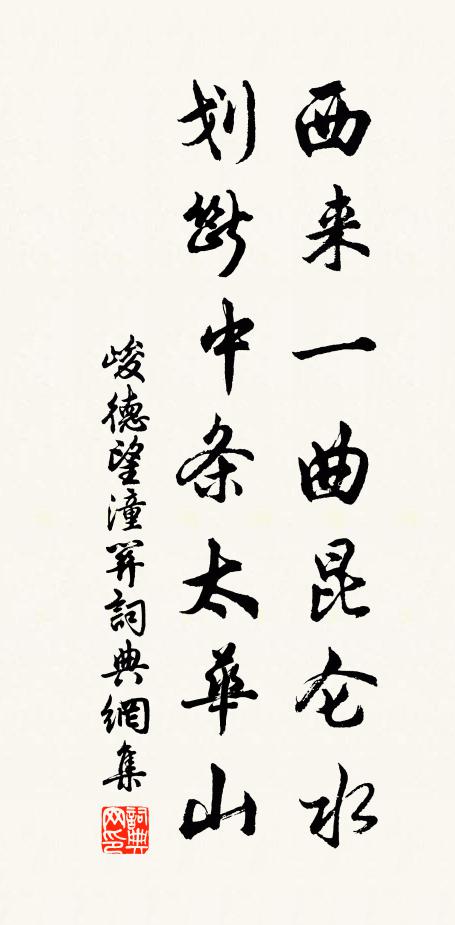 西来一曲昆仑水
划断中条太华山
峻德望潼関詞典網集
詞典网印